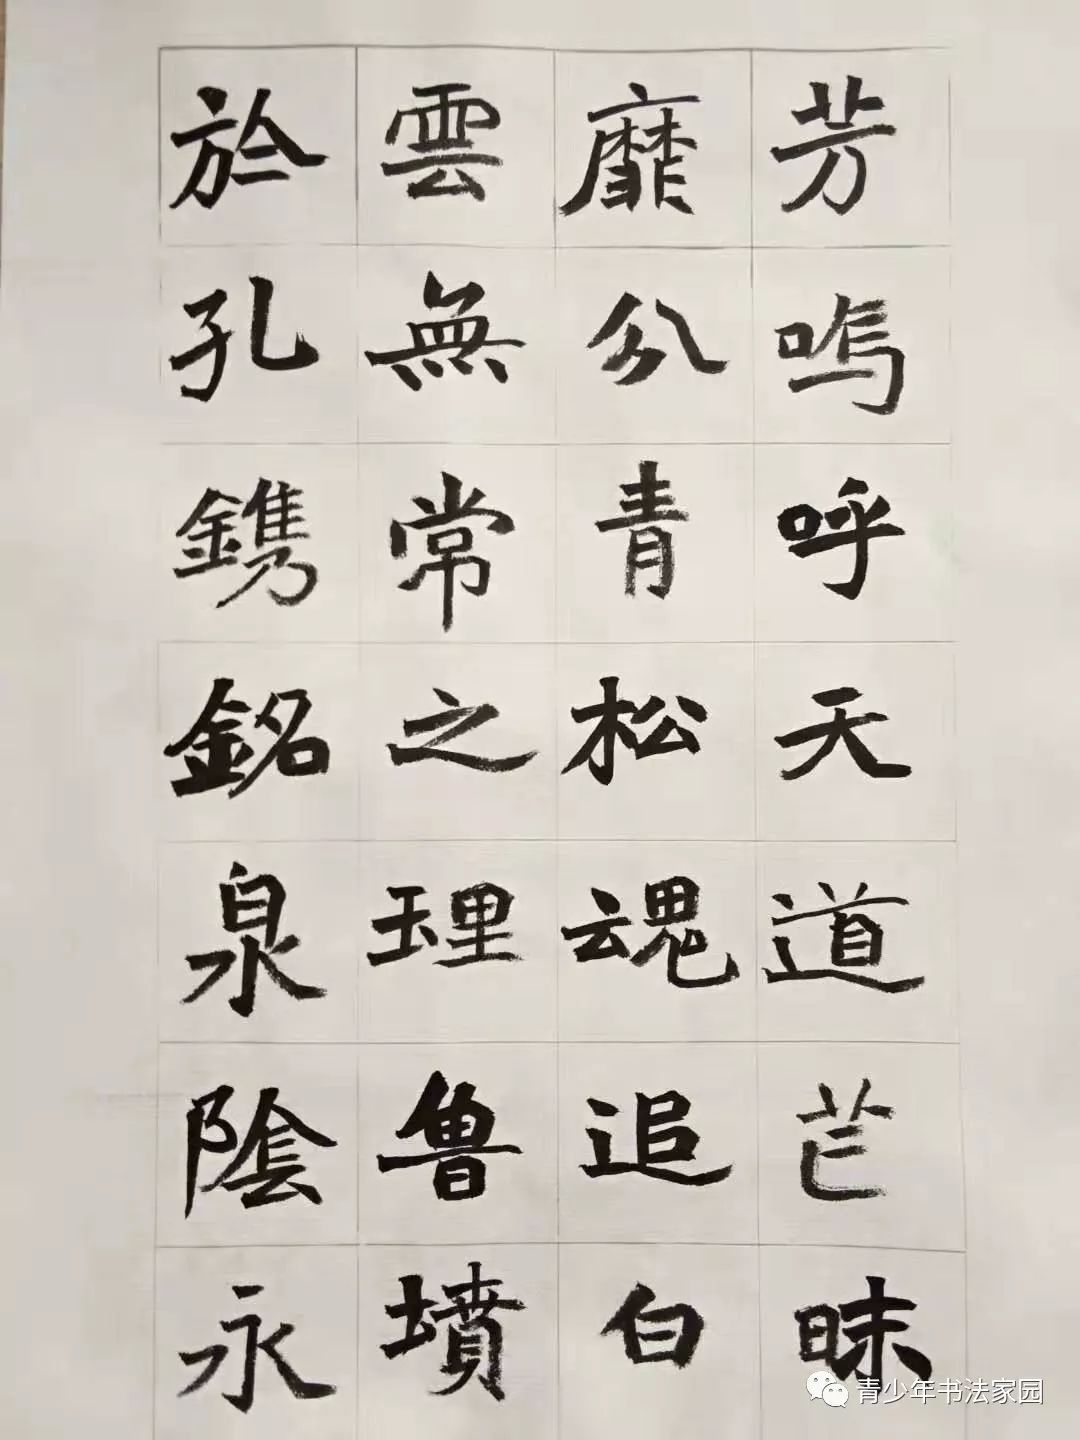 芳嗚呼天道芒昧
靡分青松魂追白
雲無常之理魯墳
於孔鐫銘泉陰永
青少年书法家园